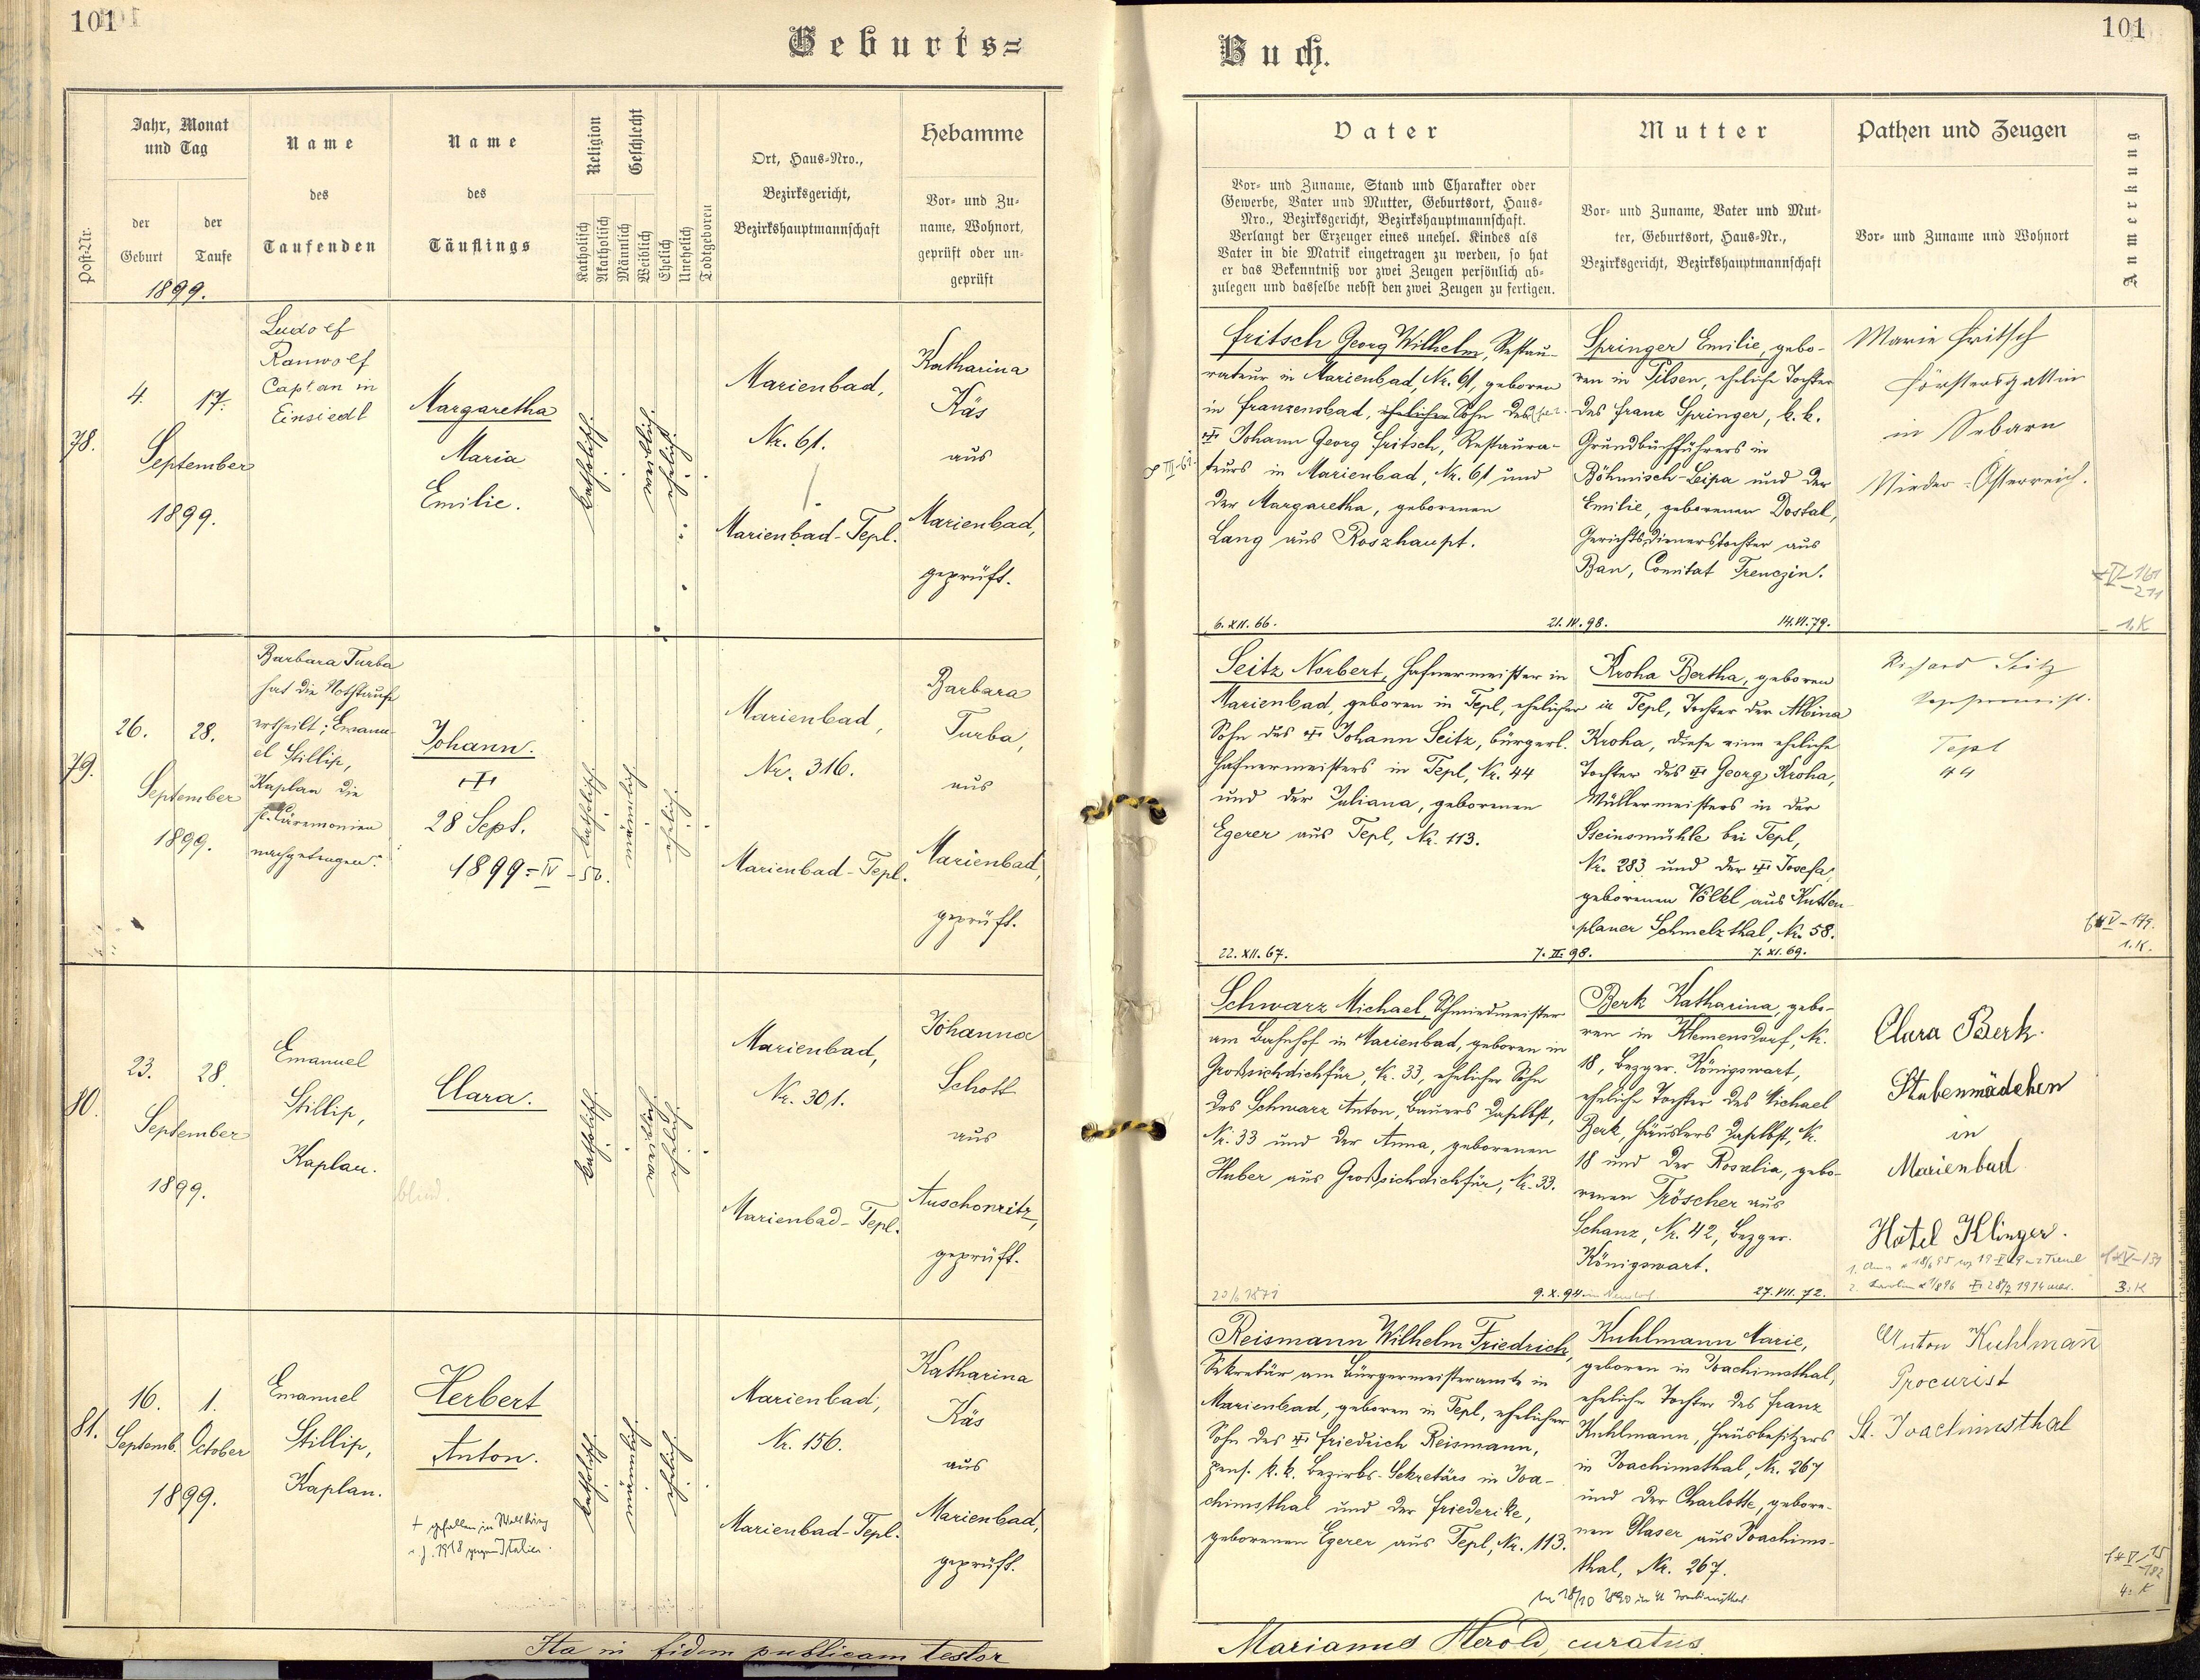 101
Geburts=
Jahr, Monat
und Tag
Name
Name
Religion
Geschlecht
Ort, Haus=Nro.,
Hebamme
Post=Nr.
der
Geburt
der
Taufe
des
Taufenden
des
Täuflings
Katholisch
Akatholisch
Männlich
Weiblich
Ehelich
Unehelich
Todtgeboren
Bezirksgericht,
Bezirkshauptmannschaft
Vor= und Zu=
name, Wohnort,
geprüft oder un=
geprüft
1899.
78.
4.
17.
September
1899.
Ludolf
Ranwolf
Caplan in
Einsiedl
Margaretha
Maria
Emilie.
katholisch.
weiblich.
ehelich.
Marienbad,
Nr. 61.
Marienbad-Tepl.
Katharina
Käs
aus
Marienbad,
geprüft.
79.
26.
28.
September
1899.
Barbara Turba
hat die Nothtaufe
ertheilt; Emanu-
el Stillip,
Kaplan die
hl. Ceremonien
nachgetragen.
Johann.
28 Sept.
1899 = IV - 50.
katholisch.
männlich
ehelich
Marienbad,
Nr. 316.
Marienbad-Tepl.
Barbara
Turba,
aus
Marienbad,
geprüft.
80.
23.
28.
September
1899.
Emanuel
Stillip,
Kaplan.
Clara.
katholisch.
weiblich
ehelich
Marienbad,
Nr. 301.
Marienbad-Tepl.
Johanna
Schott
aus
Auschowitz,
geprüft.
81.
16.
1.
Septemb.
October
1899.
Emanuel
Stillip,
Kaplan.
Herbert
Anton.
+ gefallen im Weltkrieg
i. J. 1918 gegen Italien.
katholisch
männlich
ehelich
Marienbad,
Nr. 156.
Marienbad-Tepl.
Katharina
Käs
aus
Marienbad,
geprüft.
Ita in fidem publicam testor
101
Buch.
Vater
Mutter
Pathen und Zeugen
Anmerkung
Vor= und Zuname, Stand und Charakter oder
Gewerbe, Vater und Mutter, Geburtsort, Haus=
Nro., Bezirksgericht, Bezirkshauptmannschaft.
Verlangt der Erzeuger eines unehel. Kindes als
Vater in die Matrik eingetragen zu werden, so hat
er das Bekenntniß vor zwei Zeugen persönlich ab=
zulegen und dasselbe nebst den zwei Zeugen zu fertigen.
Vor= und Zuname, Vater und Mut=
ter, Geburtsort, Haus=Nr.,
Bezirksgericht, Bezirkshauptmannschaft
Vor= und Zuname und Wohnort
Fritsch Georg Wilhelm, Restau-
rateur in Marienbad, Nr. 61, geboren
in Franzensbad, ehelicher Sohn des
Johann Georg Fritsch, Restaura-
teurs in Marienbad, Nr. 61 und
der Margaretha, geborenen
Lang aus Roszhaupt.
6. XII. 66.
21. IV. 98.
Springer Emilie, gebo-
ren in Pilsen, eheliche Tochter
des Franz Springer, k. k.
Grundbuchführers in
Böhmisch-Leipa und der
Emilie, geborenen Dostal,
Gerichtsdienerstochter aus
Ban, Comitat Trenczin.
14. VI. 79.
Marie Fritsch
Förstersgattin
in Sebarn
Nieder-Österreich.
1. K
Seitz Norbert, Hafnermeister in
Marienbad, geboren in Tepl, ehelicher
Sohn des Johann Seitz, bürgerl.
Hafnermeisters in Tepl, Nr. 44
und der Juliana, geborenen
Egerer aus Tepl, Nr. 113.
22. XII. 67.
7. II. 98.
Kroha Bertha, geboren
in Tepl, Tochter der Albina
Kroha, diese eine eheliche
Tochter des Georg Kroha,
Müllermeisters in der
Steinsmühle bei Tepl,
Nr. 283 und der Josefa,
geborenen Völkl aus Kutten-
planer Schmelzthal, Nr. 58.
7. XI. 69.
Richard Seitz
Tepl
44
1. K.
Schwarz Michael, Schmiedmeister
am Bahnhof in Marienbad, geboren in
Großsichdichfür, Nr. 33, ehelicher Sohn
des Schwarz Anton, Bauers daselbst,
Nr. 33 und der Anna, geborenen
Huber aus Großsichdichfür, Nr. 33.
9. X. 94.
Berk Katharina, gebo-
ren in Klemensdorf, Nr.
18, Bezger. Königswart,
eheliche Tochter des Michael
Berk, Häuslers daselbst, Nr.
18 und der Rosalia, gebo-
renen Tröscher aus
Schanz, Nr. 42, Bezger.
Königswart.
27. VII. 72.
Clara Berk.
Stubenmädchen
in
Marienbad
Hotel Klinger.
3. K
Reismann Wilhelm Friedrich,
Sekretär am Bürgermeisteramte in
Marienbad, geboren in Tepl, ehelicher
Sohn des Friedrich Reismann,
pens. k. k. Bezirks-Sekretärs in Joa-
chimsthal und der Friederike,
geborenen Egerer aus Tepl, Nr. 113.
Kuhlmann Marie,
geboren in Joachimsthal,
eheliche Tochter des Franz
Kuhlmann, Hausbesitzers
in Joachimsthal, Nr. 267
und der Charlotte, gebore-
nen Glaser aus Joachims-
thal, Nr. 267.
Anton Kuhlmañ
Procurist
St. Joachimsthal
4. K
Marianus Herold, curatus